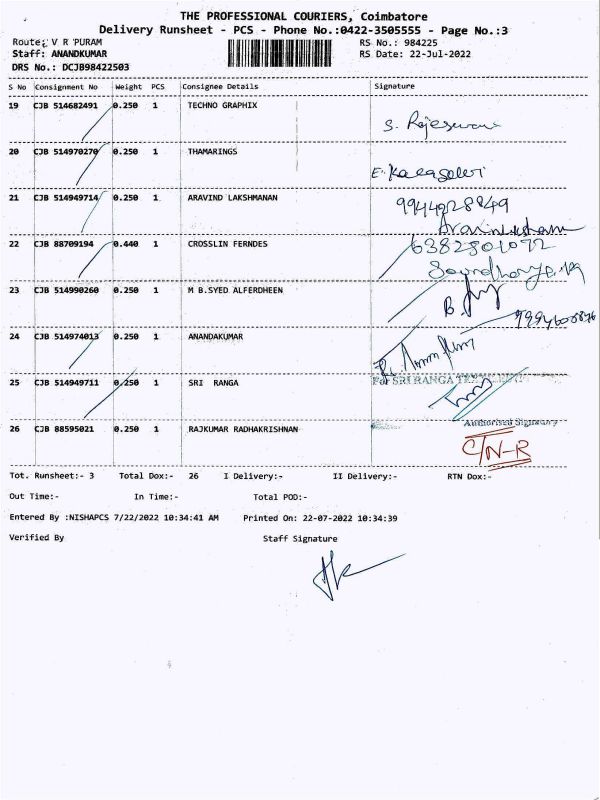 THE PROFESSIONAL COURIERS, Coimbatore
Delivery Runsheet - PCS - Phone No.:0422-3505555 - Page No.:3
Route: V R PURAM RS No.: 984225
Staff: ANANDKUMAR RS Date: 22-Jul-2022
DRS No.: DCJB98422503
S No Consignment No Weight PCS Consignee Details Signature
19 CJB 514682491 0.250 1 TECHNO GRAPHIX
S. Rajeswari
20 CJB 514970270 0.250 1 THAMARINGS
E. Kalaiselvi
21 CJB 514949714 0.250 1 ARAVIND LAKSHMANAN
9944928849
22 CJB 88709194 0.440 1 CROSSLIN FERNDES
6382501072
23 CJB 514990260 0.250 1 M B.SYED ALFERDHEEN
B.
24 CJB 514974013 0.250 1 ANANDAKUMAR
For SRI RANGA
25 CJB 514949711 0.250 1 SRI RANGA
Authorised Signatory
26 CJB 88595021 0.250 1 RAJKUMAR RADHAKRISHNAN
C/N-R
Tot. Runsheet:- 3 Total Dox:- 26 I Delivery:- II Delivery:- RTN Dox:-
Out Time:- In Time:- Total POD:-
Entered By :NISHAPCS 7/22/2022 10:34:41 AM Printed On: 22-07-2022 10:34:39
Verified By Staff Signature